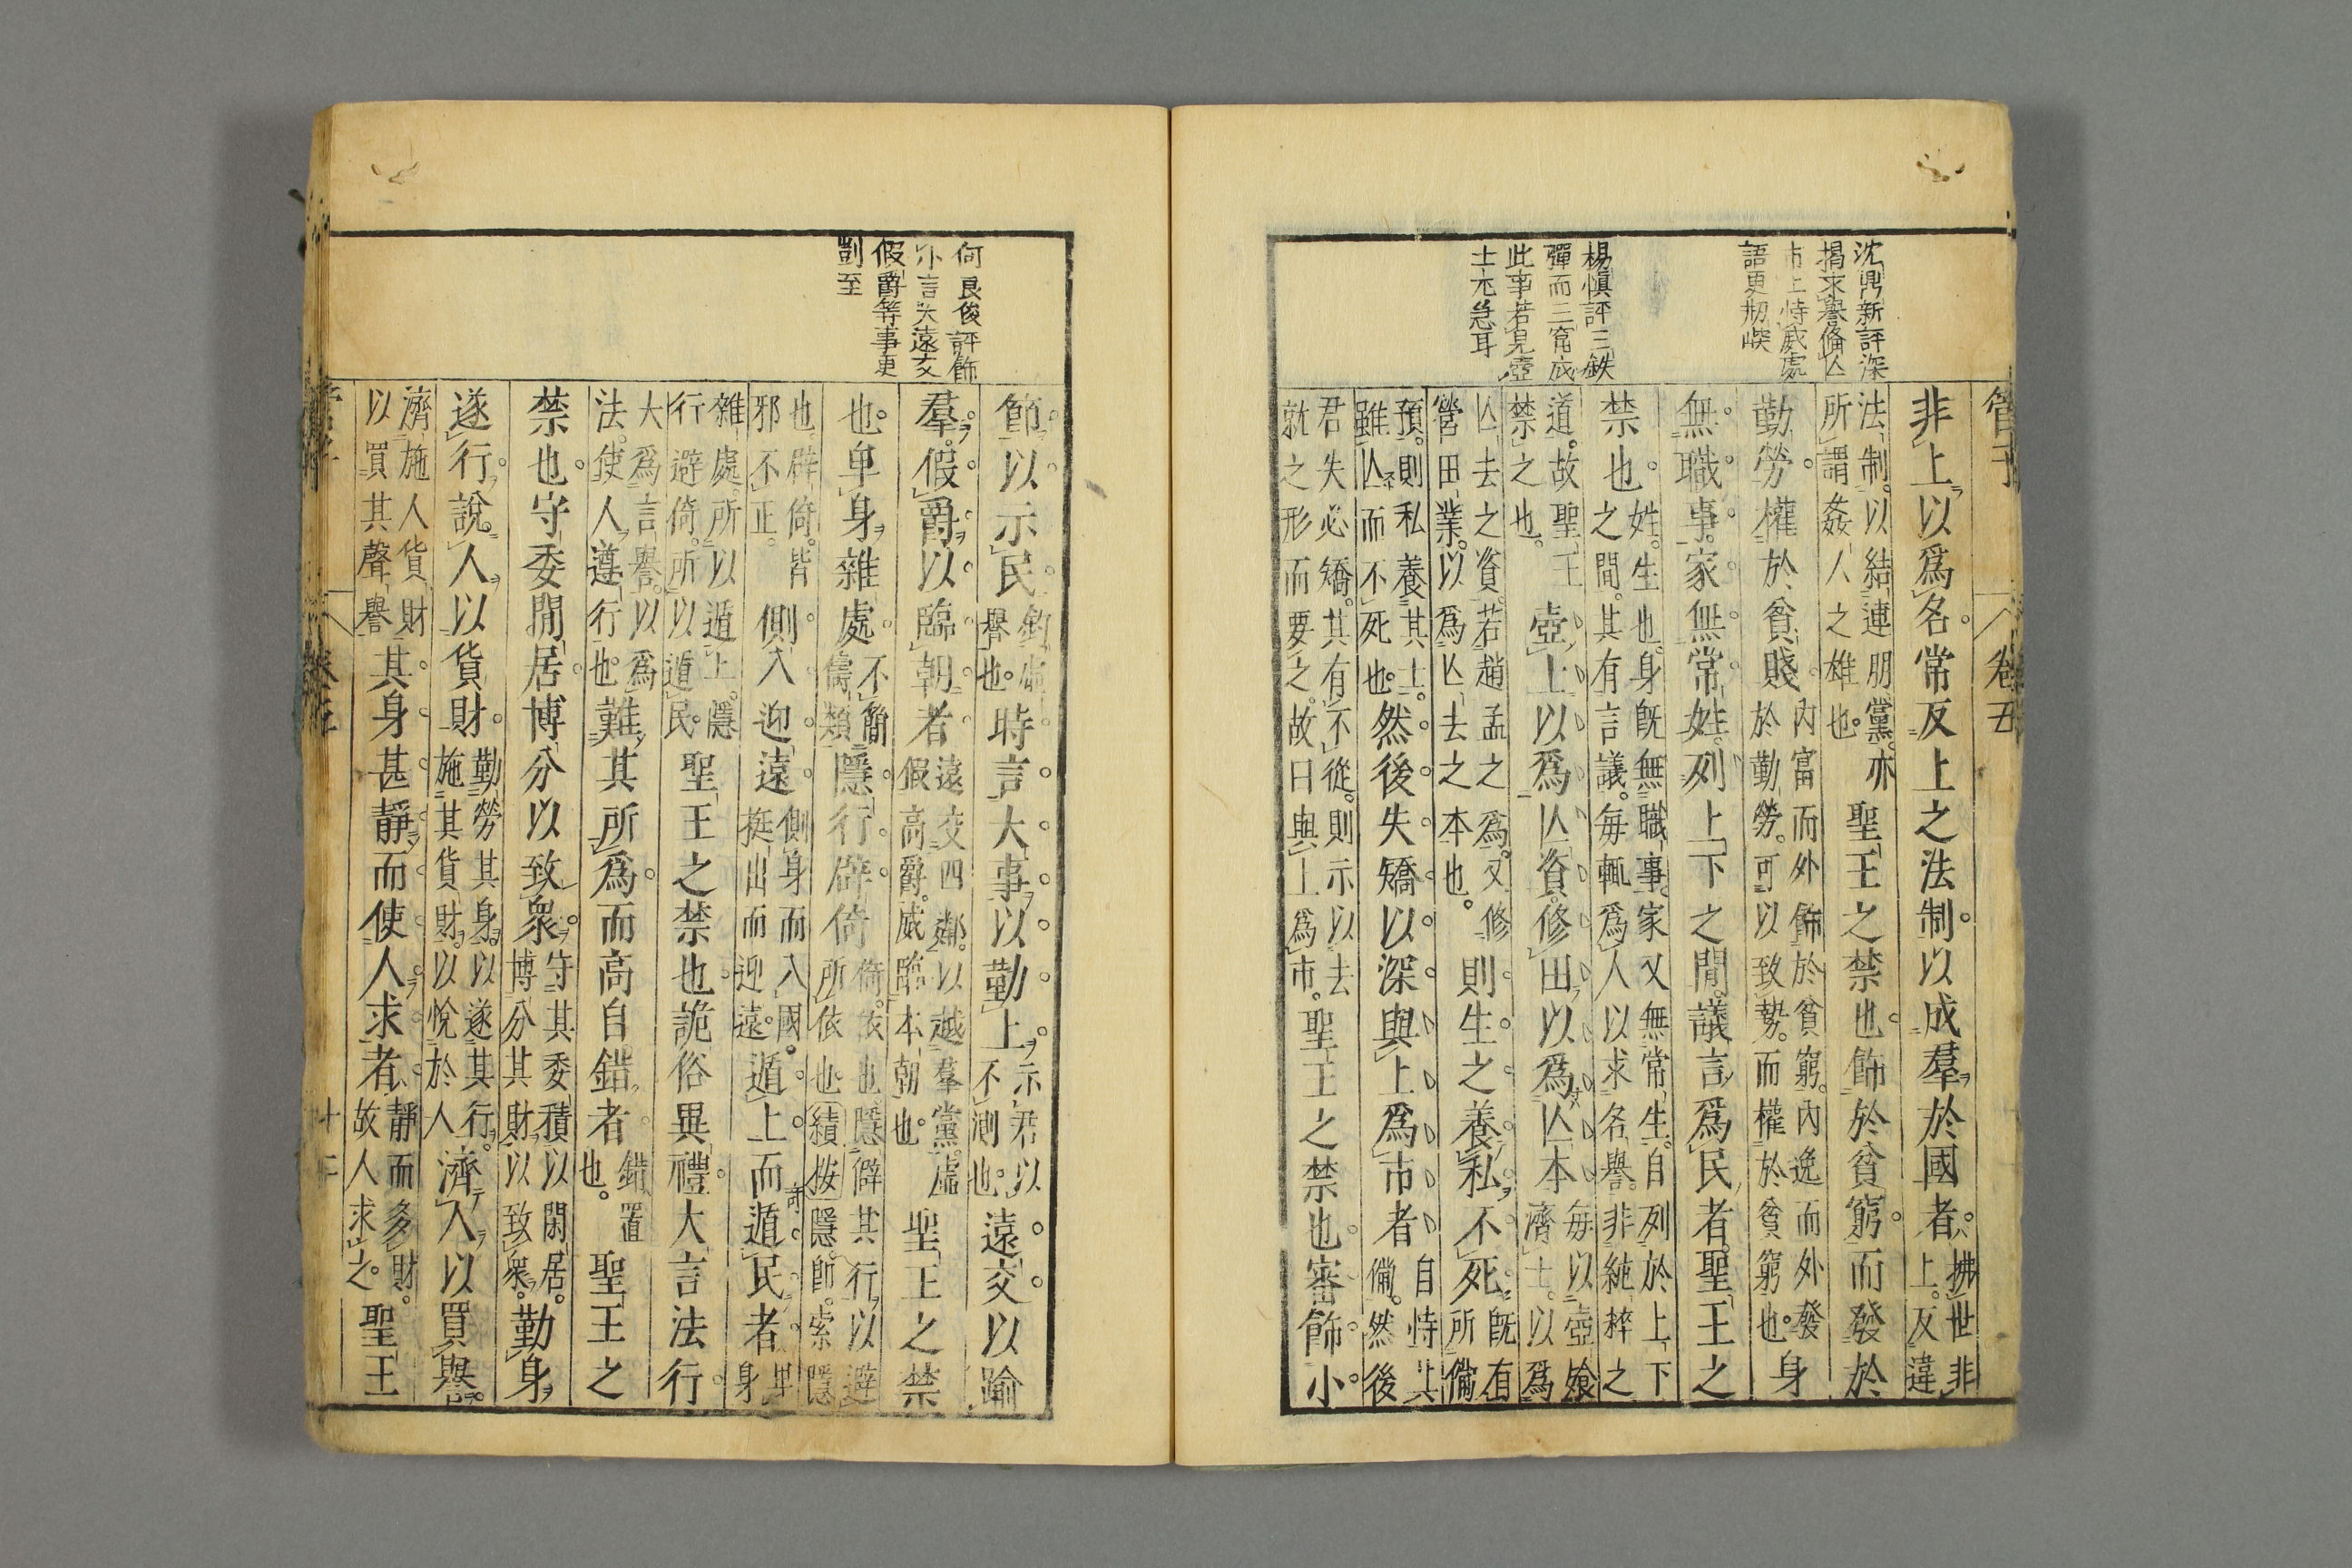 管子
卷五
沈鼎新評深
揭求譽脩亾
市上恃威處
語更
楊慎評三鉄
彈而三窟成
此事若見壺
士尤急耳
非上以爲名常反上之法制以成羣於國者拂世非
上反違
法制以結連朋黨亦
所謂姦人之雄也聖王之禁也飾於貧窮而發於
勤勞權於貧賤內富而外飾於貧窮內逸而外發
於勤勞可以致勢而權於貧窮也身
無職事家無常姓列上下之間議言爲民者聖王之
禁也姓生也身既無職事家又無常生自列於上下
之間其有言議每輒爲人以求名譽非純粹之
道故聖王
禁之也壺士以爲亾資修田以爲亾本每以壺飧
濟士以爲
亾去之資若趙孟之爲又修
營田業以爲亾去之本也則生之養私不死既有
所備
預則私養其士
雖亾而不死也然後失矯以深與上爲市者自恃其
備然後
君失必矯其有不從則示以去
就之形而要之故曰與上爲市聖王之禁也審飾小
何良俊評飾
小言大遠交
假爵等事更
剴至
節以示民釣虛
譽也時言大事以動上示君以
不測也遠交以踰
羣假爵以臨朝者遠交四鄰以越羣黨虛
假高爵威臨本朝也聖王之禁
也卑身雜處不簡
儔類隱行辟倚倚依也隱僻其行以避
所依也績按隱卽索隱
也辟倚皆
邪不正側入迎遠側身而入國
挺出而迎遠遁上而遁民者卑
身
雜處所以遁上隱
行避倚所以遁民聖王之禁也詭俗異禮大言法行
大爲言譽以爲
法使人遵行也難其所爲而高自錯者錯置
也聖王之
禁也守委閒居博分以致衆守其委積以閑居
博分其財以致衆勤身
遂行說人以貨財勤勞其身以遂其行
施其貨財以悅於人濟人以買譽
濟施人貨財
以買其聲譽其身甚靜而使人求者靜而多財
故人求之聖王
管子
卷五
十二